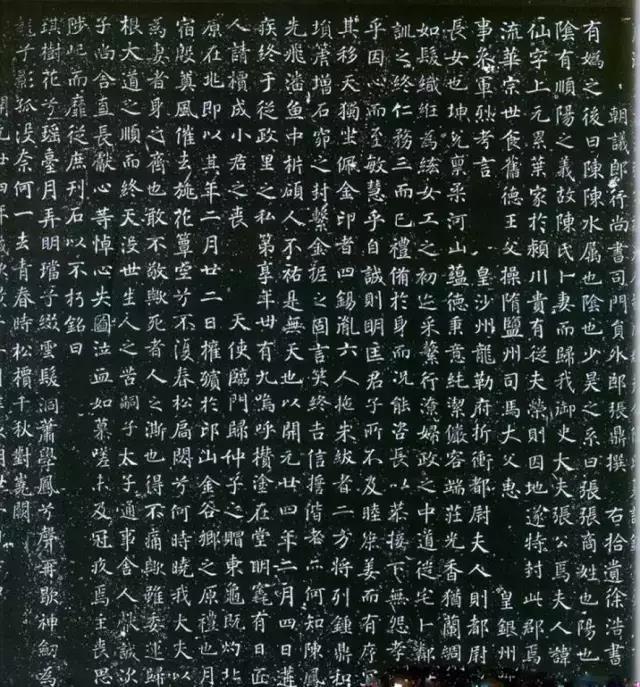 朝議郎行尚書司門負外郎張鼎撰 右拾遺徐浩書
有媯之後曰陳陳水屬也陰也少昊之系曰張張商姓也陽也
陰有順陽之義故陳氏卜妻而歸我御史大夫張公焉夫人諱
仙字上元累葉家於潁川貴有從夫榮則因地遂特封此郡焉
流華宗世食舊德王父操隋鹽州司馬大父惠 皇銀州
事參軍烈考言 皇沙州龍勒府折衝都尉夫人則都尉
長女也坤元稟柔河山藴德秉意純潔儀容端莊光香猶蘭綢
如髮織紝為綌女工之初迄采蘩行潦婦政之中道從宅卜鄰
訓之終仁務三而已禮備於身而況能咨長以恭接下無怨孝
乎因心而至敏慧乎自誠則明匡君子所不及睦娣姜而有序
其移天獨坐佩金印者四錫胤六人拖朱紱者二方將列鍾鼎
簫增石窌之封繫金之固言笑終吉信誓偕老何知陳鳳
先飛潘魚中析碩人不祐是無天也以開元廿四年二月四日遘
疾終于從政里之私第享年卌有九嗚呼攢塗在堂明竁有日
人請櫝成小君之喪 天使臨門歸仲子之賵東龜既灼北
原在兆即以其年二月廿二日擁殯於邙山金谷鄉之原禮也月
宿殷奠風催去旐花簟空兮不復春松扃閟兮何時曉我大夫以
為妻者身之齊也敢不敬歟死者人之澌也得不痛歟雖委運歸
根大道之順而終天沒世生人之苦嗣子太子通事舍人獻誠次
子尚舍直長獻心等悼心失圖泣血如慕嗟未及冠疚焉主喪思
陟屺而靡從庶刊石以不朽銘曰
琪樹花兮瑤臺月弄明璫子綴雲髮洞簫學鳳兮聲再歇神劍為
龍子影孤沒奈何一去青春時松檟千秋對嵩闕
開元廿四年歲次